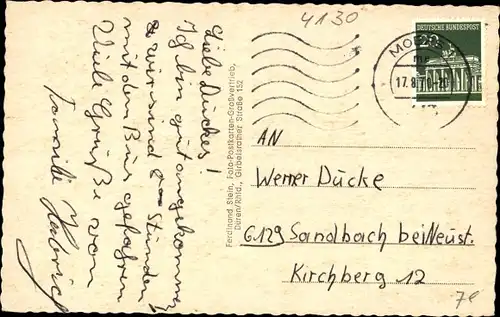 4130
Liebe Dückes!
Ich bin gut angekommen
wir sind 8 Stunden
mit dem Bus gefahren
Viele Grüße von
Familie
Ferdinand Stein, Foto-Postkarten-Großvertrieb,
Düren/Rhld., Girbelsrather Straße 152
DEUTSCHE BUNDESPOST
MOERS
17.8.70-20
AN
Werner Dücke
6129 Sandbach bei Neust.
Kirchberg 12